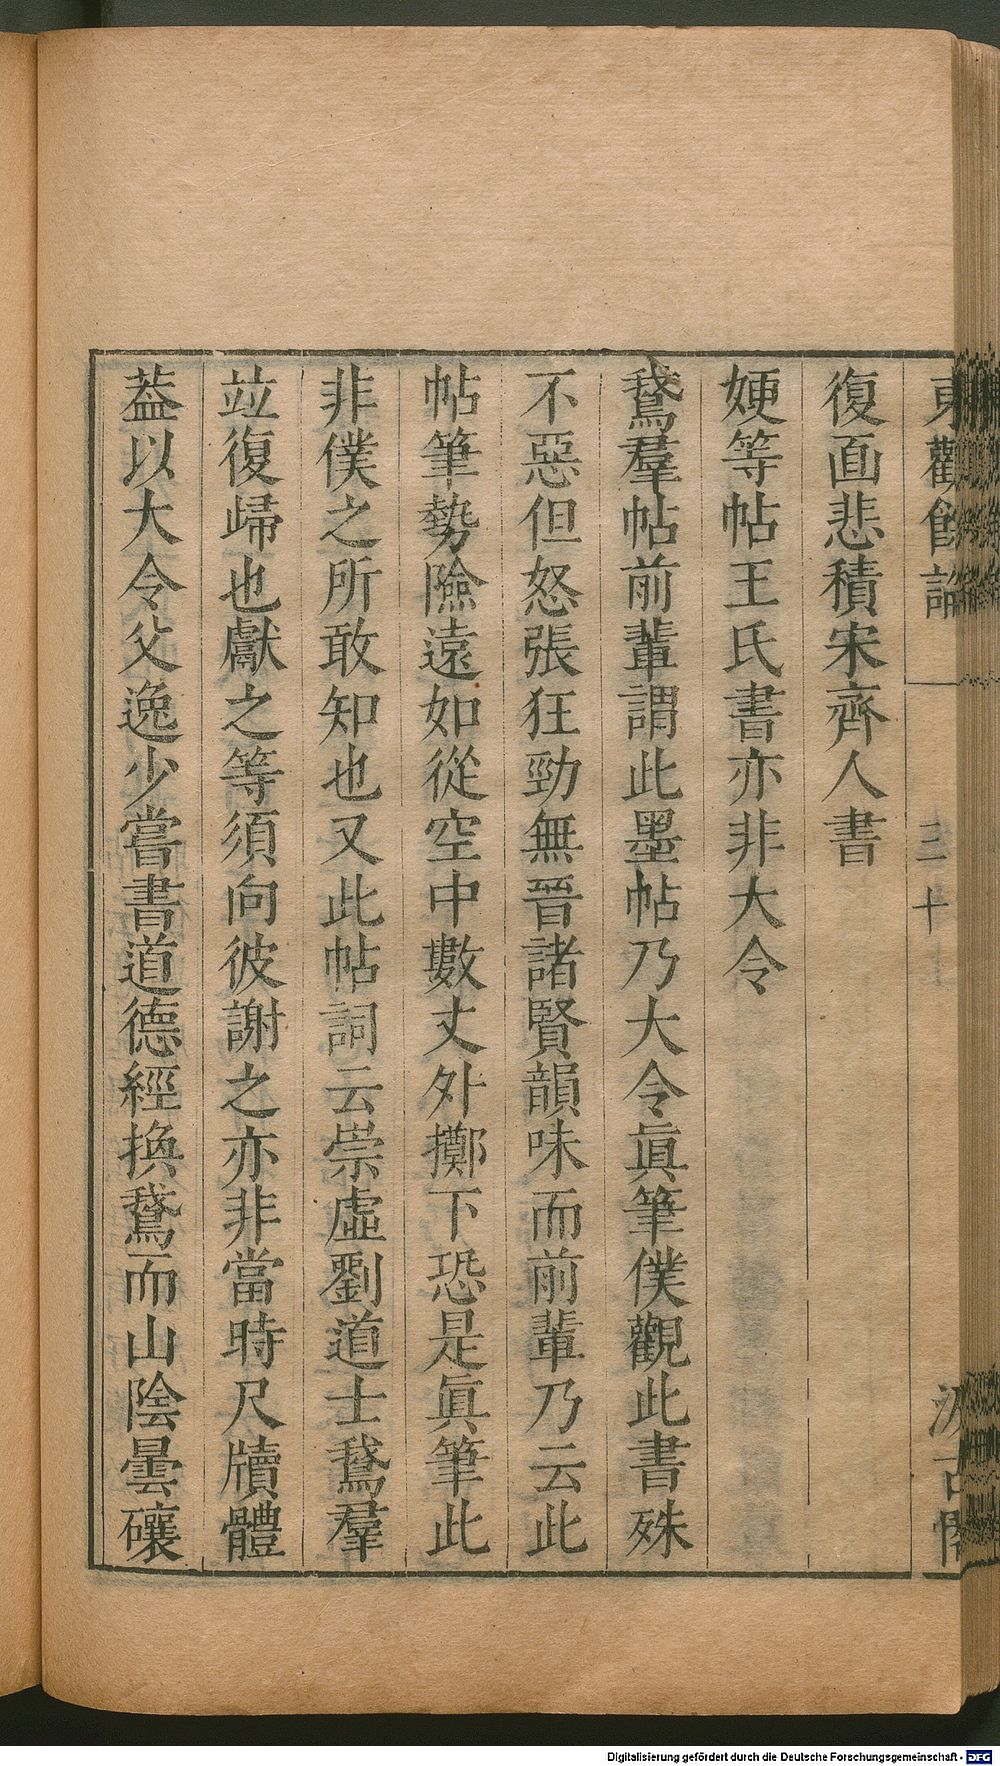 東觀餘論
三十
汲古閣
復面悲積宋齊人書
㛐等帖王氏書亦非大令
鵞羣帖前輩謂此墨帖乃大令眞筆僕觀此書殊
不惡但怒張狂勁無晉諸賢韻味而前輩乃云此
帖筆勢險遠如從空中數丈外擲下恐是眞筆此
非僕之所敢知也又此帖詞云崇虛劉道士鵞羣
竝復歸也獻之等須向彼謝之亦非當時尺牘體
葢以大令父逸少嘗書道德經換鵞而山陰曇礦
Digitalisierung gefördert durch die Deutsche Forschungsgemeinschaft - DFG